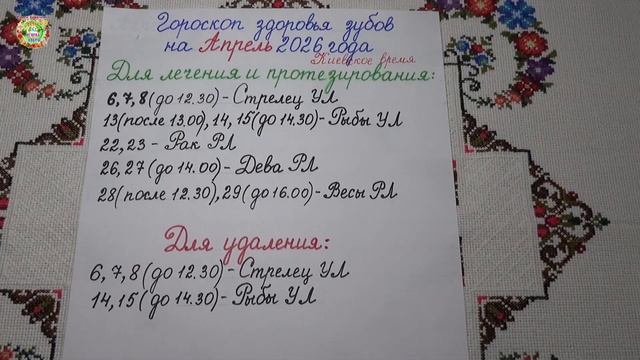 Гороскоп здоровья зубов
на Апрель 2026 года
Киевское время
Для лечения и протезирования:
6,7,8(до 12.30)-Стрелец УЛ
13(после 13.00),14,15(до 14.30)-Рыбы УЛ
22,23 - Рак РЛ
26,27(до 14.00)-Дева РЛ
28(после 12.30),29(до 16.00)-Весы РЛ
Для удаления:
6,7,8(до 12.30)-Стрелец УЛ
14,15(до 14.30)-Рыбы УЛ